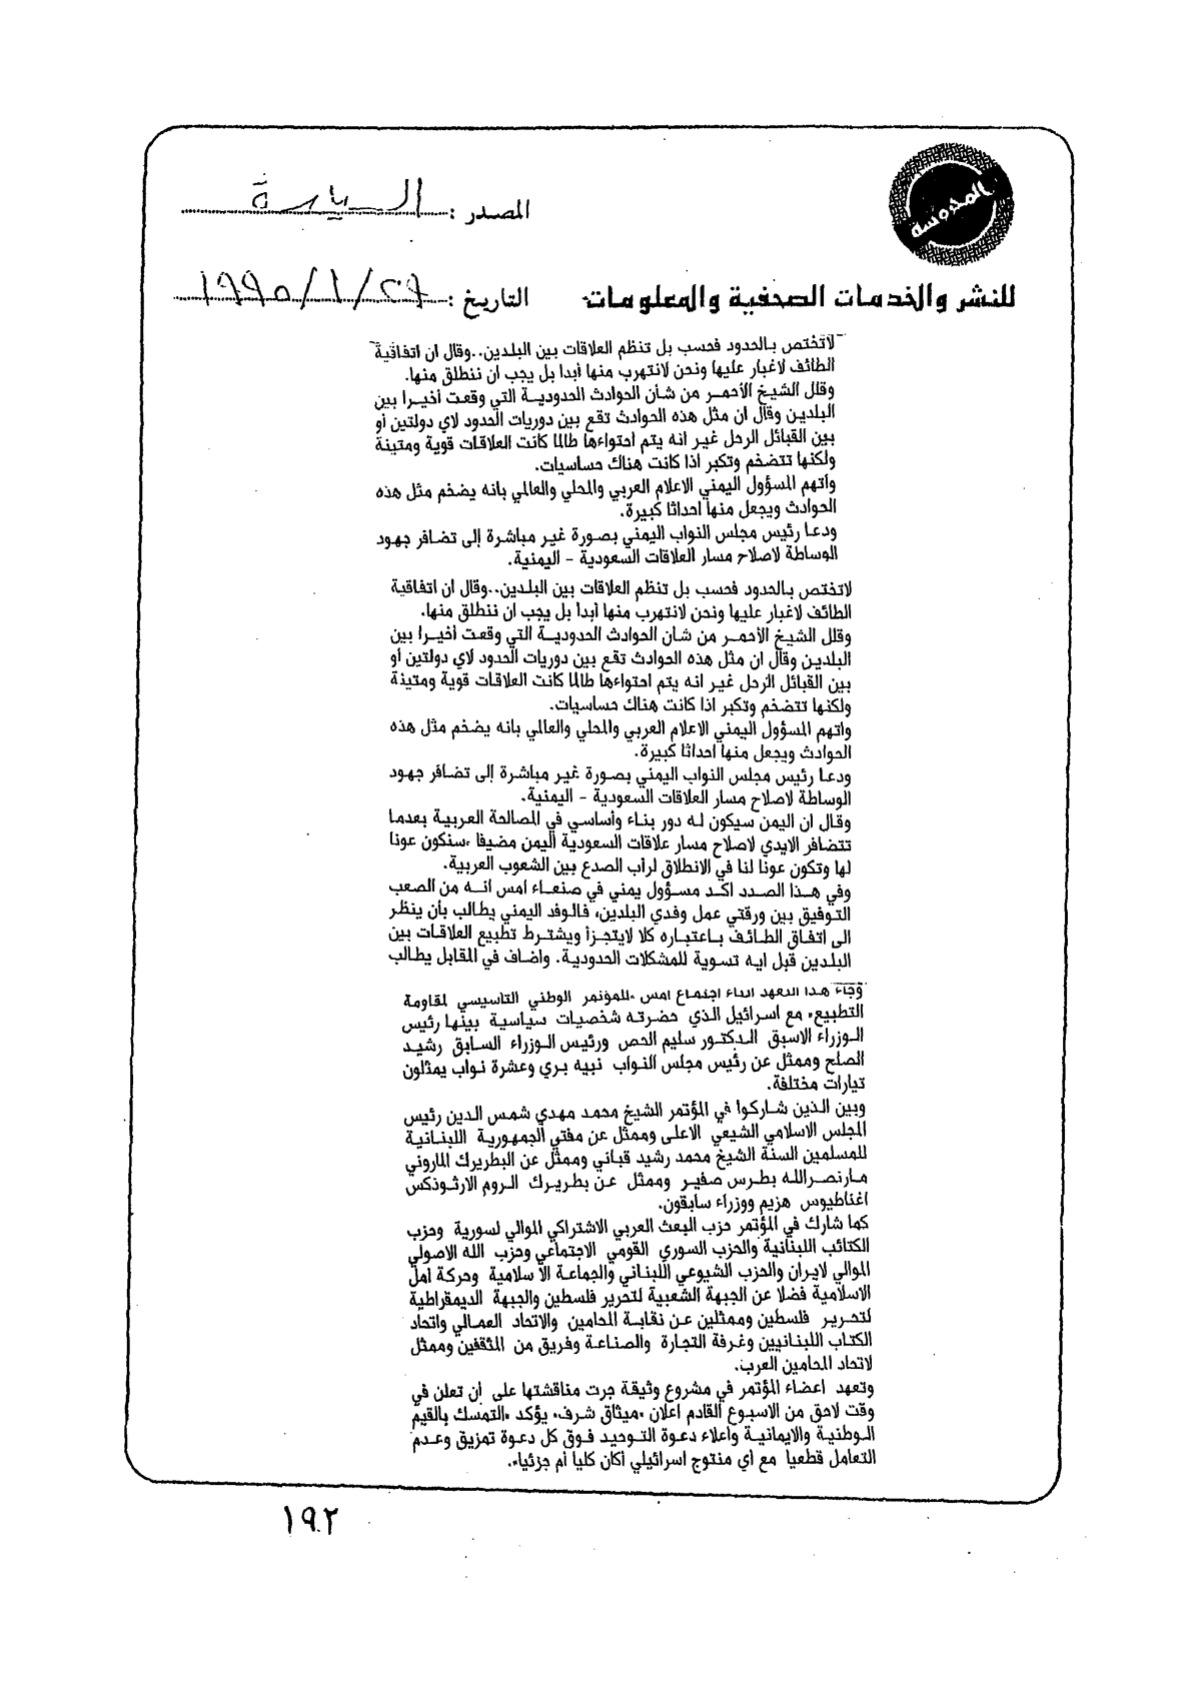 المصدر :
التاريخ : ٢٩/١/١٩٩٥
للنشر والخدمات الصحفية والمعلومات
لاتختص بالحدود فحسب بل تنظم العلاقات بين البلدين..وقال ان اتفاقية
الطائف لاغبار عليها ونحن لانتهرب منها أبدا بل يجب ان ننطلق منها.
وقلل الشيخ الأحمر من شأن الحوادث الحدودية التي وقعت أخيرا بين
البلدين وقال ان مثل هذه الحوادث تقع بين دوريات الحدود لاي دولتين أو
بين القبائل الرحل غير انه يتم احتواءها طالما كانت العلاقات قوية ومتينة
ولكنها تتضخم وتكبر اذا كانت هناك حساسيات.
واتهم المسؤول اليمني الاعلام العربي والمحلي والعالمي بانه يضخم مثل هذه
الحوادث ويجعل منها احداثا كبيرة.
ودعا رئيس مجلس النواب اليمني بصورة غير مباشرة إلى تضافر جهود
الوساطة لاصلاح مسار العلاقات السعودية - اليمنية.
لاتختص بالحدود فحسب بل تنظم العلاقات بين البلدين..وقال ان اتفاقية
الطائف لاغبار عليها ونحن لانتهرب منها أبدا بل يجب ان ننطلق منها.
وقلل الشيخ الأحمر من شان الحوادث الحدودية التي وقعت أخيرا بين
البلدين وقال ان مثل هذه الحوادث تقع بين دوريات الحدود لاي دولتين أو
بين القبائل الرحل غير انه يتم احتواءها طالما كانت العلاقات قوية ومتينة
ولكنها تتضخم وتكبر اذا كانت هناك حساسيات.
واتهم المسؤول اليمني الاعلام العربي والمحلي والعالمي بانه يضخم مثل هذه
الحوادث ويجعل منها احداثا كبيرة.
ودعا رئيس مجلس النواب اليمني بصورة غير مباشرة إلى تضافر جهود
الوساطة لاصلاح مسار العلاقات السعودية - اليمنية.
وقال ان اليمن سيكون له دور بناء وأساسي في المصالحة العربية بعدما
تتضافر الايدي لاصلاح مسار علاقات السعودية اليمن مضيفا «سنكون عونا
لها وتكون عونا لنا في الانطلاق لراب الصدع بين الشعوب العربية.
وفي هذا الصدد اكد مسؤول يمني في صنعاء امس انه من الصعب
التوفيق بين ورقتي عمل وفدي البلدين، فالوفد اليمني يطالب بأن ينظر
الى اتفاق الطائف باعتباره كلا لايتجزأ ويشترط تطبيع العلاقات بين
البلدين قبل ايه تسوية للمشكلات الحدودية. واضاف في المقابل يطالب
وجاء هذا التعهد اثناء اجتماع امس «للمؤتمر الوطني التاسيسي لمقاومة
التطبيع» مع اسرائيل الذي حضرته شخصيات سياسية بينها رئيس
الوزراء الاسبق الدكتور سليم الحص ورئيس الوزراء السابق رشيد
الصلح وممثل عن رئيس مجلس النواب نبيه بري وعشرة نواب يمثلون
تيارات مختلفة.
وبين الذين شاركوا في المؤتمر الشيخ محمد مهدي شمس الدين رئيس
المجلس الاسلامي الشيعي الاعلى وممثل عن مفتي الجمهورية اللبنانية
للمسلمين السنة الشيخ محمد رشيد قباني وممثل عن البطريرك الماروني
مارنصرالله بطرس صفير وممثل عن بطريرك الروم الارثوذكس
اغناطيوس هزيم ووزراء سابقون.
كما شارك في المؤتمر حزب البعث العربي الاشتراكي الموالي لسورية وحزب
الكتائب اللبنانية والحزب السوري القومي الاجتماعي وحزب الله الاصولي
الموالي لايران والحزب الشيوعي اللبناني والجماعة الاسلامية وحركة امل
الاسلامية فضلا عن الجبهة الشعبية لتحرير فلسطين والجبهة الديمقراطية
لتحرير فلسطين وممثلين عن نقابة المحامين والاتحاد العمالي واتحاد
الكتاب اللبنانيين وغرفة التجارة والصناعة وفريق من المثقفين وممثل
لاتحاد المحامين العرب.
وتعهد اعضاء المؤتمر في مشروع وثيقة جرت مناقشتها على أن تعلن في
وقت لاحق من الاسبوع القادم اعلان «ميثاق شرف» يؤكد «التمسك بالقيم
الوطنية والايمانية واعلاء دعوة التوحيد فوق كل دعوة تمزيق وعدم
التعامل قطعيا مع أي منتوج اسرائيلي أكان كليا أم جزئيا».
١٩٢